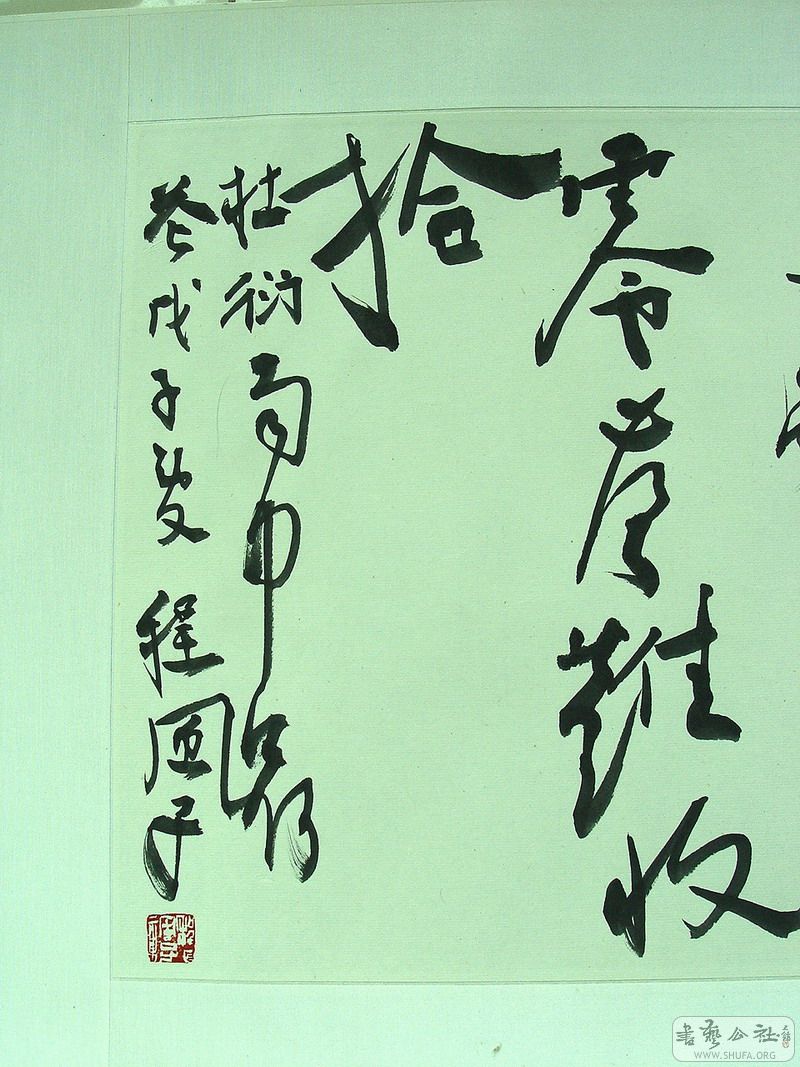 零落難收
拾
杜衍雨中荷
花戊子夏程風子
書藝公社
WWW.SHUFA.ORG